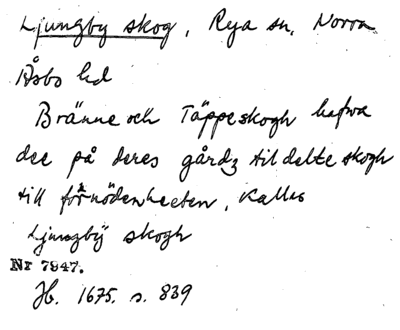 Ljungby skog, Rya sn, Norra
Åsbo hd
Bränne och Täppeskogh hafwa
dee på deres gårdz tildelte skogh
till förnödenheeten, Kallas
Ljungbÿ skogh
Nr 7947.
Jb. 1675. s. 839